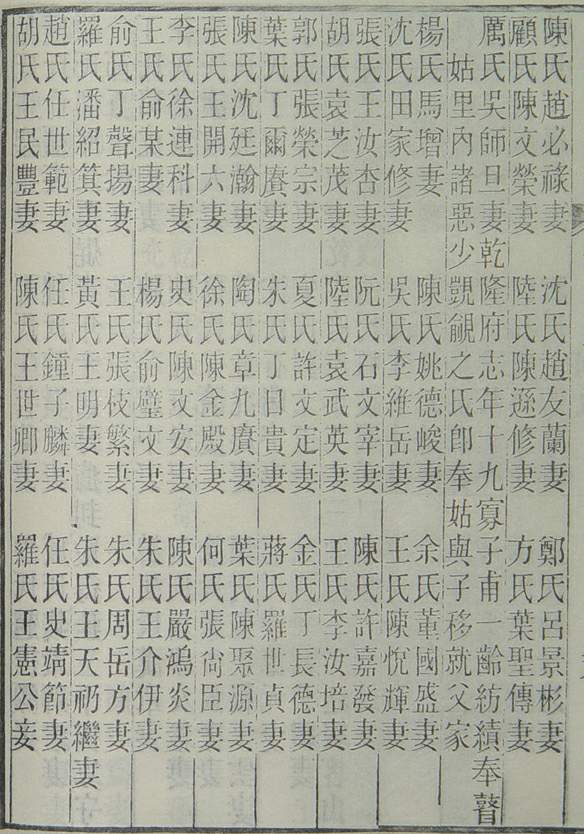 陳氏趙必祿妻 沈氏趙友蘭妻 鄭氏呂景彬妻
顧氏陳文榮妻 陸氏陳遜修妻 方氏葉聖傳妻
厲氏吳師旦妻乾隆府志年十九寡子甫一齡紡績奉瞽
姑里內諸惡少覬覦之氏卽奉姑與子移就父家
楊氏馬增妻 陳氏姚德峻妻 余氏董國盛妻
沈氏田家修妻 吳氏李維岳妻 王氏陳悅輝妻
張氏王汝杏妻 阮氏石文宰妻 陳氏許嘉發妻
胡氏袁芝茂妻 陸氏袁武英妻 王氏李汝培妻
郭氏張榮宗妻 夏氏許文定妻 金氏丁長德妻
葉氏丁爾賡妻 朱氏丁日貴妻 蔣氏羅世貞妻
陳氏沈廷瀚妻 陶氏章九賡妻 葉氏陳聚源妻
張氏王開六妻 徐氏陳金殿妻 何氏張尙臣妻
李氏徐連科妻 史氏陳文安妻 陳氏嚴鴻炎妻
王氏俞某妻 楊氏俞璧文妻 朱氏王介伊妻
俞氏丁聲揚妻 王氏張枝繁妻 朱氏周岳方妻
羅氏潘紹箕妻 黃氏王明妻 朱氏王天礽繼妻
趙氏任世範妻 任氏鍾子麟妻 任氏史靖節妻
胡氏王民豐妻 陳氏王世卿妻 羅氏王憲公妾